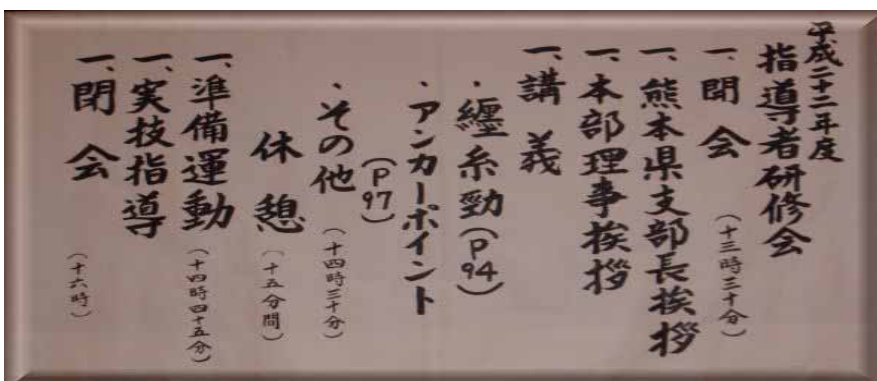 平成二十二年度
指導者研修会
一、開会（十三時三十分）
一、熊本県支部長挨拶
一、本部理事挨拶
一、講義
・纏糸勁（P94）
・アンカーポイント
（P97）
・その他（十四時三十分）
休憩（十五分間）
一、準備運動（十四時四十五分）
一、実技指導
一、閉会（十六時）